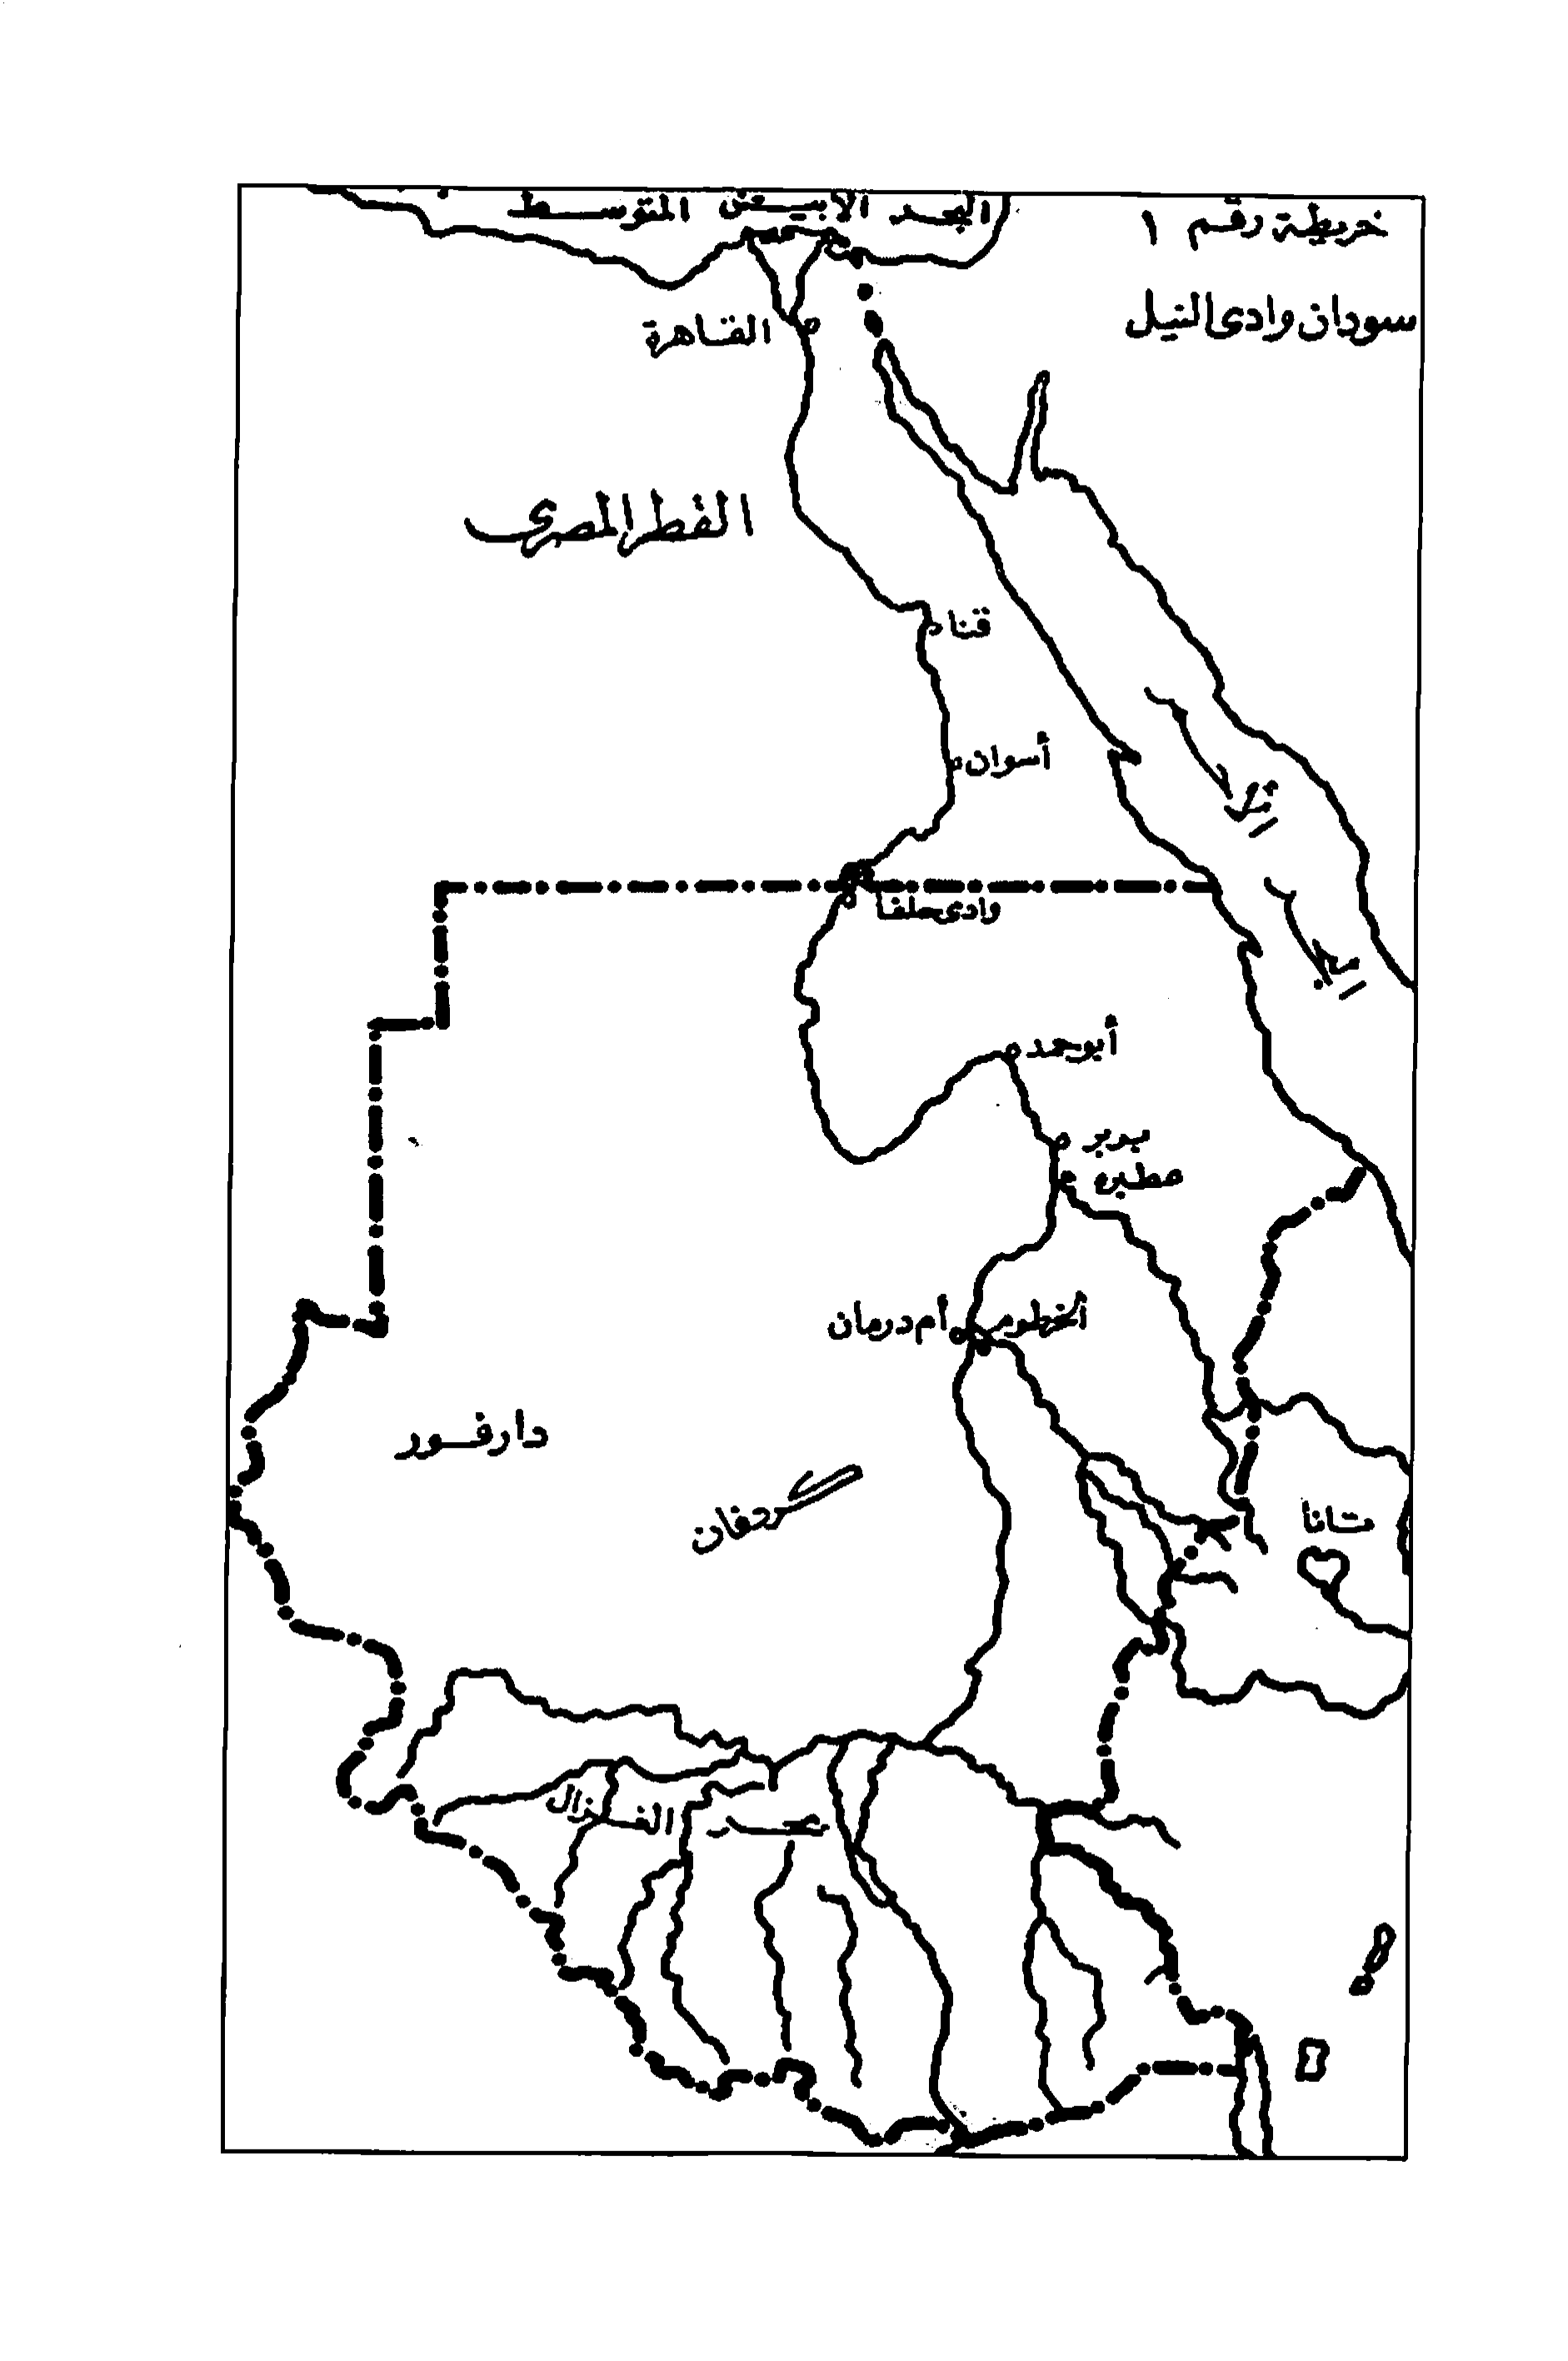 خريطة رقم ١
سودان وادى النيل
البحر الأبيض المتوسط
القاهرة
القطر المصرى
قنا
أسوان
البحر الأحمر
وادى حلفا
أبو حمد
بربر
عطبره
الخرطوم
أم درمان
دارفور
كردفان
تانا
بحر الغزال